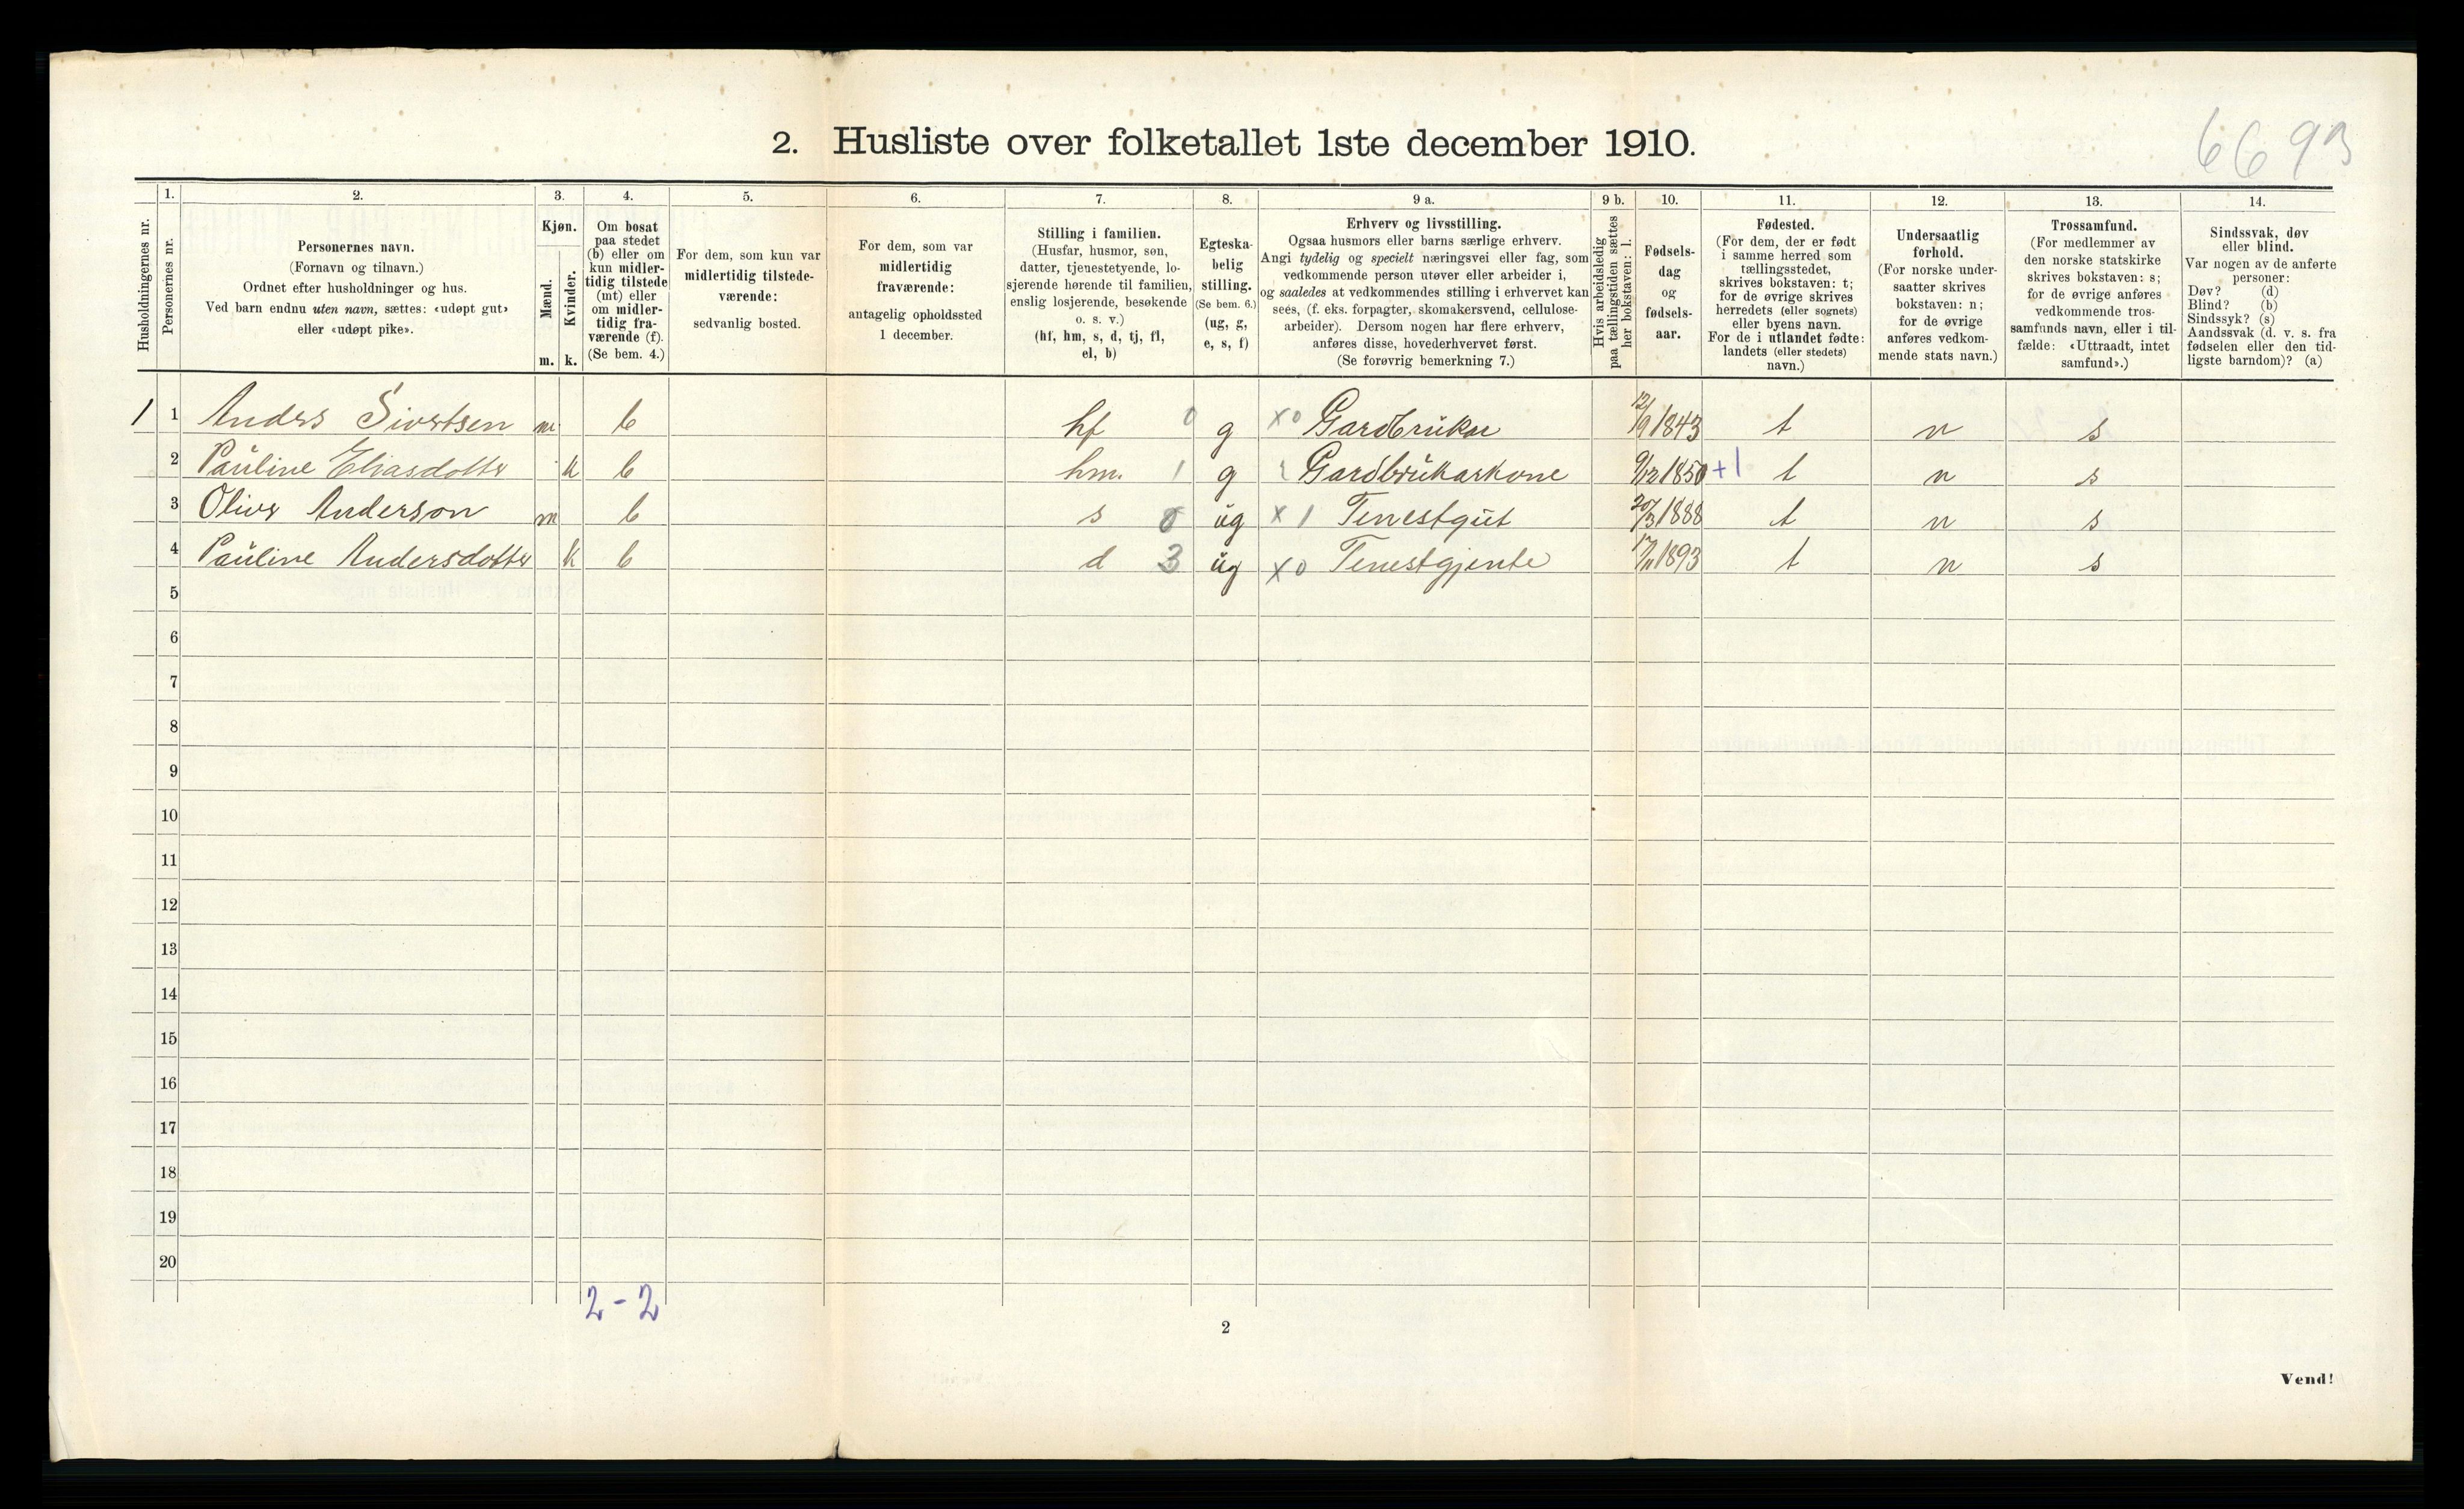 2. Husliste over folketallet 1ste december 1910.
6693
Husholdningernes nr.
1.
Personernes nr.
2.
Personernes navn.
(Fornavn og tilnavn.)
Ordnet efter husholdninger og hus.
Ved barn endnu uten navn, sættes: «udøpt gut»
eller «udøpt pike».
3.
Kjøn.
Mænd.
m.
Kvinder.
k.
4.
Om bosat
paa stedet
(b) eller om
kun midler-
tidig tilstede
(mt) eller
om midler-
tidig fra-
værende (f).
(Se bem. 4.)
5.
For dem, som kun var
midlertidig tilstede-
værende:
sedvanlig bosted.
6.
For dem, som var
midlertidig
fraværende:
antagelig opholdssted
1 december.
7.
Stilling i familien.
(Husfar, husmor, søn,
datter, tjenestetyende, lo-
sjerende hørende til familien,
enslig losjerende, besøkende
o. s. v.)
(hf, hm, s, d, tj, fl,
el, b)
8.
Egteska-
belig
stilling.
(Se bem. 6.)
(ug, g,
e, s, f)
9 a.
Erhverv og livsstilling.
Ogsaa husmors eller barns særlige erhverv.
Angi tydelig og specielt næringsvei eller fag, som
vedkommende person utøver eller arbeider i,
og saaledes at vedkommendes stilling i erhvervet kan
sees, (f. eks. forpagter, skomakersvend, cellulose-
arbeider). Dersom nogen har flere erhverv,
anføres disse, hovederhvervet først.
(Se forøvrig bemerkning 7.)
9 b.
Hvis arbeidsledig
paa tællingstiden sættes
her bokstaven: l.
10.
Fødsels-
dag
og
fødsels-
aar.
11.
Fødested.
(For dem, der er født
i samme herred som
tællingsstedet,
skrives bokstaven: t;
for de øvrige skrives
herredets (eller sognets)
eller byens navn.
For de i utlandet fødte:
landets (eller stedets)
navn.)
12.
Undersaatlig
forhold.
(For norske under-
saatter skrives
bokstaven: n;
for de øvrige
anføres vedkom-
mende stats navn.)
13.
Trossamfund.
(For medlemmer av
den norske statskirke
skrives bokstaven: s;
for de øvrige anføres
vedkommende tros-
samfunds navn, eller i til-
fælde: «Uttraadt, intet
samfund».)
14.
Sindssvak, døv
eller blind.
Var nogen av de anførte
personer:
Døv? (d)
Blind? (b)
Sindssyk? (s)
Aandssvak (d. v. s. fra
fødselen eller den tid-
ligste barndom)? (a)
1 1 Anders Sivertsen m b hf 0 g x0 Gardbruker 12/9 1843 t n s
2 Pauline Eliasdotter k b hm. 1 g Gardbrukarkone 9/12 1850 +1 t n s
3 Oliver Anderson m b s 0 ug x 1 Tenestgut 20/3 1888 t n s
4 Pauline Andersdotter k b d 3 ug x0 Tenestgjente 17/11 1893 t n s
5
6
7
8
9
10
11
12
13
14
15
16
17
18
19
20
2-2
2
Vend!